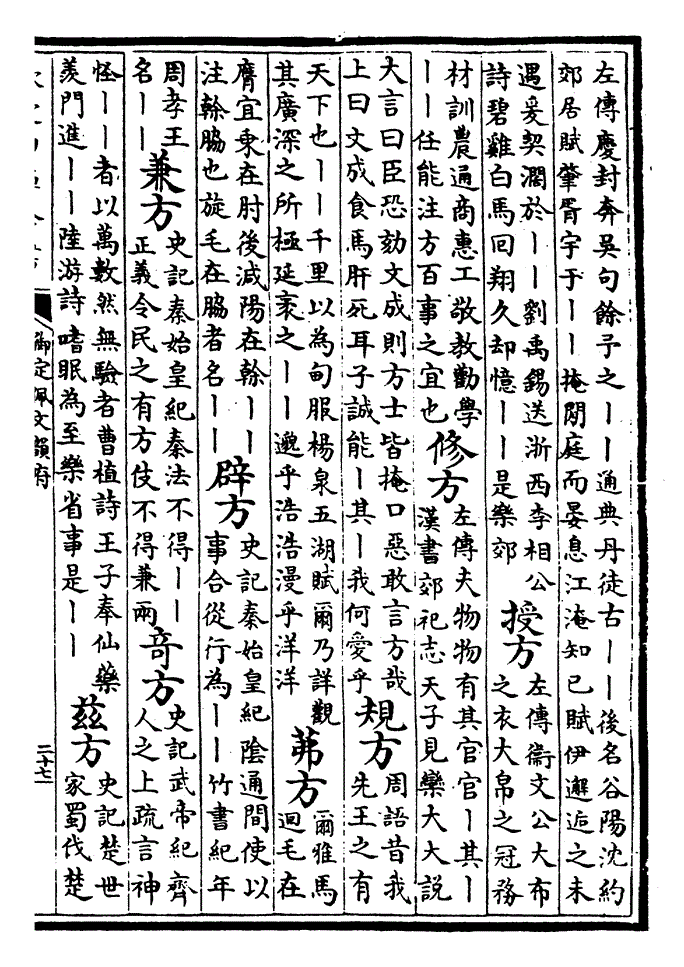 左傳慶封奔吳句餘予之丨丨通典丹徒古丨丨後名谷陽沈約
郊居賦肇胥宇于丨丨掩閉庭而晏息江淹知己賦伊邂逅之未
遇爰契濶於丨丨劉禹錫送浙西李相公
詩碧雞白馬回翔久却憶丨丨是樂郊
授方
左傳衛文公大布
之衣大帛之冠務
材訓農通商惠工敬教勸學
丨丨任能注方百事之宜也
修方
左傳夫物物有其官官丨其丨
漢書郊祀志天子見欒大大說
大言曰臣恐効文成則方士皆掩口惡敢言方哉
上曰文成食馬肝死耳子誠能丨其丨我何愛乎
規方
周語昔我
先王之有
天下也丨丨千里以為甸服楊泉五湖賦爾乃詳觀
其廣深之所極延袤之丨丨邈乎浩浩漫乎洋洋
茀方
爾雅馬
迴毛在
膺宜乘在肘後減陽在榦丨丨
注榦脇也旋毛在脇者名丨丨
辟方
史記秦始皇紀陰通間使以
事合從行為丨丨竹書紀年
周孝王
名丨丨
兼方
史記秦始皇紀秦法不得丨丨
正義令民之有方伎不得兼兩
奇方
史記武帝紀齊
人之上疏言神
怪丨丨者以萬數然無驗者曹植詩王子奉仙藥
羨門進丨丨陸游詩嗜眠為至樂省事是丨丨
茲方
史記楚世
家蜀伐楚
御定佩文韻府
二十七